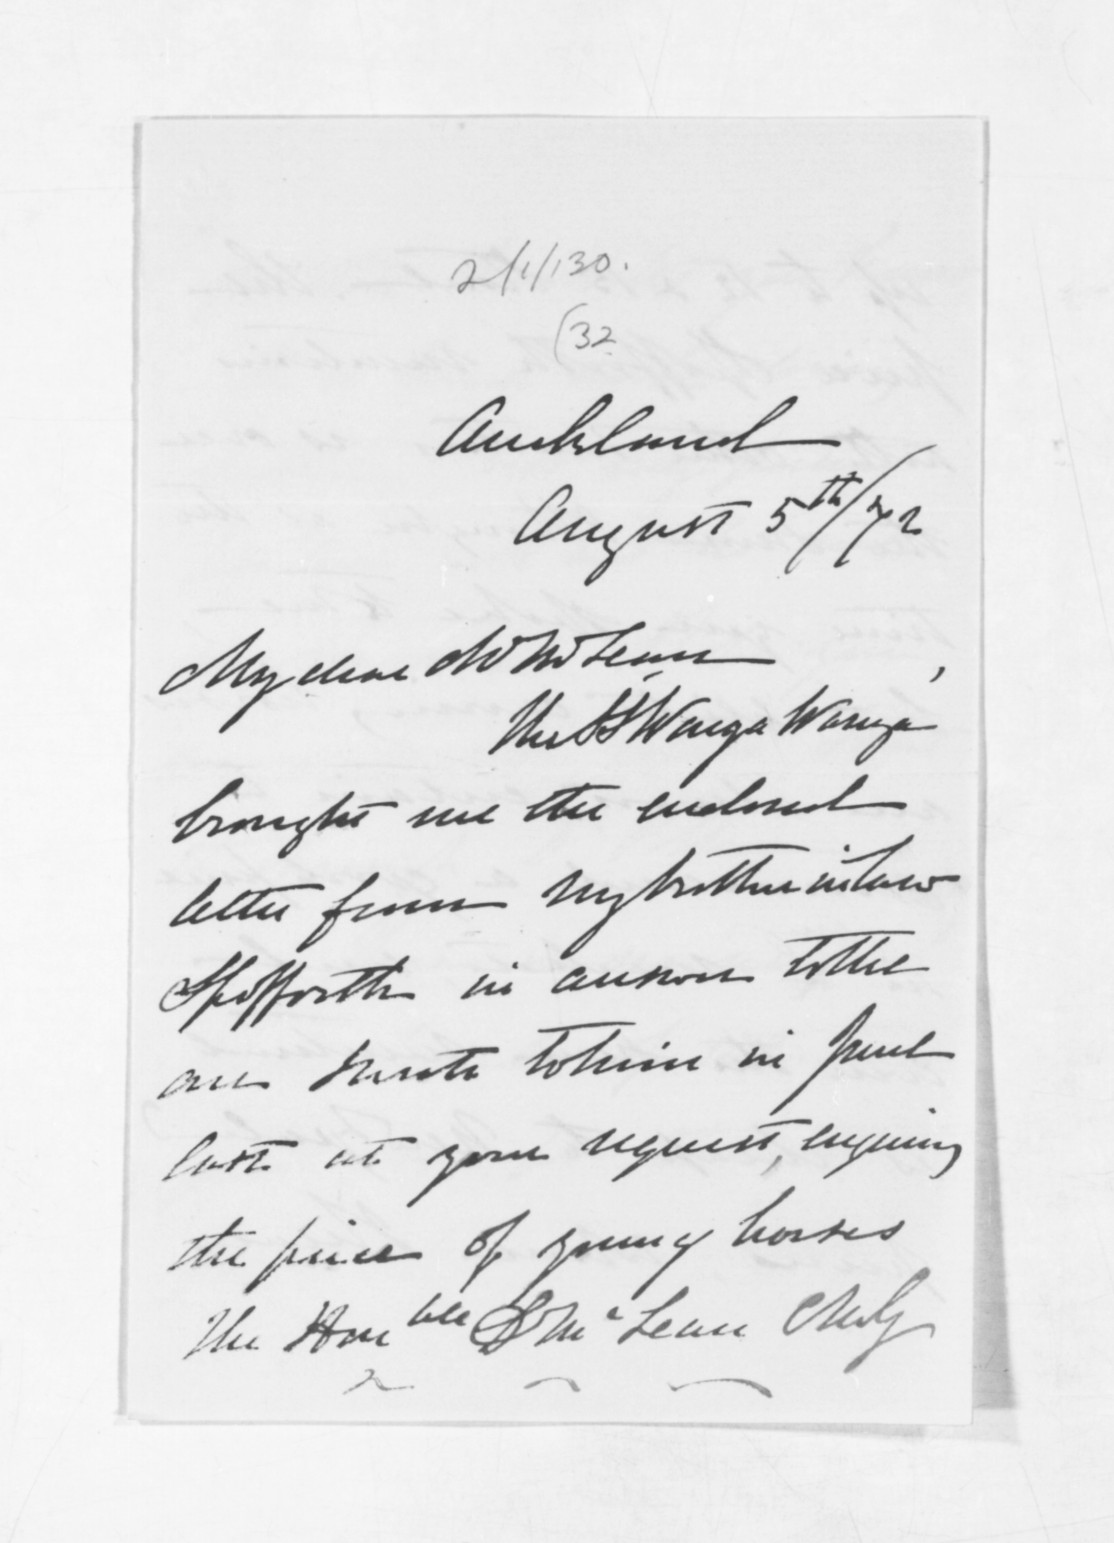 2/1/130.
(32
Auckland
August 5th/72
My dear Mr McLean,
The SS Wanga Wanga
brought me the enclosed
letter from my brother in law
Spofforth in answer to the
one I wrote to him in June
last at your request, enquiring
the price of young horses
The Honble D McLean